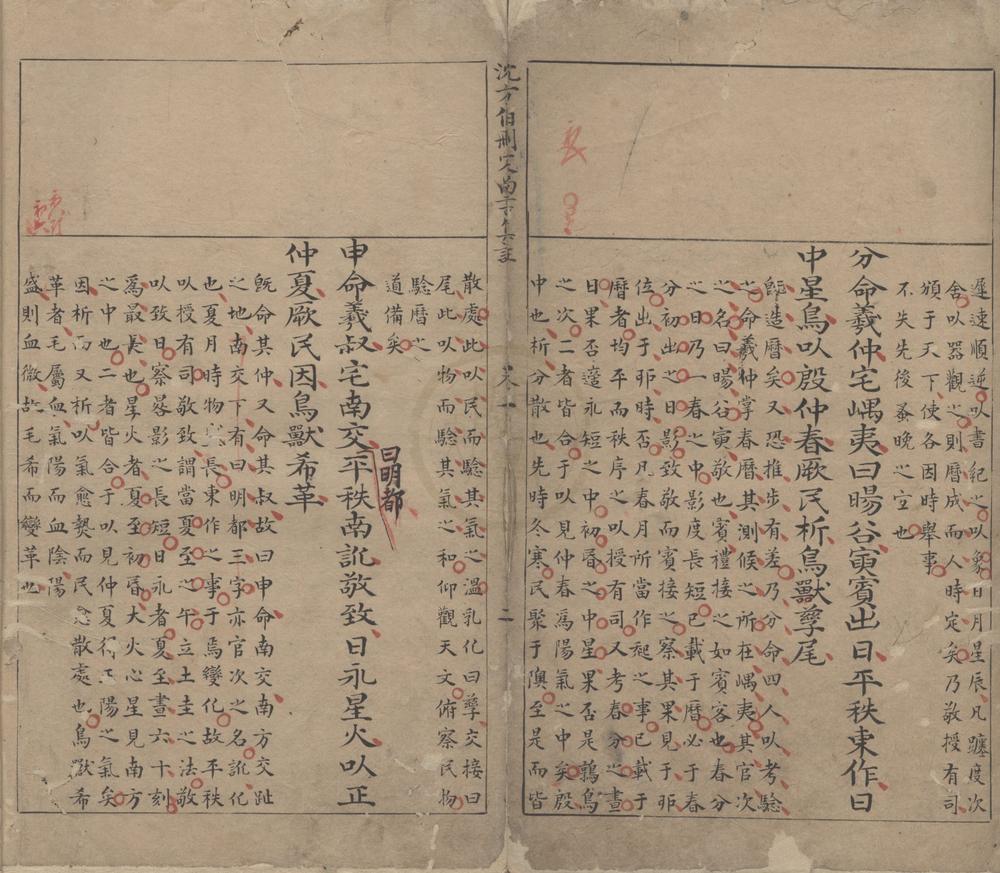 遲速順逆以書紀之以象日月星辰凡躔度次
舍以器觀之則曆成而人時定矣乃敬授有司
頒于天下使各因時舉事
不失先後蚤晚之宜也
分命羲仲宅嵎夷曰暘谷寅賓出日平秩東作日
中星鳥以殷仲春厥民析鳥獸孳尾
既造曆矣又恐推步有差乃分命四人以考驗
之命羲仲掌春曆其測候之所在嵎夷其官次
之名曰暘谷寅敬也賓禮接之如賓客也春分
之日乃一春之中影度長短已載于曆必于春
分初出之日影致敬而賓接之察其果見于卯
位出于卯時否凡春月所當作起之事已載于
曆者均平而秩序之以授有司又考春分之晝
日果否適永短之中初昏之中星果否是鶉鳥
之次二者皆合于以見仲春爲陽氣之中矣殷
中也析分散也先時冬寒民聚于隩至是而皆
沈方伯刪定尚書
卷一
二
散處此以民而驗其氣之溫乳化曰孳交接曰
尾此以物而驗其氣之和仰觀天文俯察民物
驗曆之
道備矣
申命羲叔宅南交平秩南訛敬致日永星火以正
曰明都
仲夏厥民因鳥獸希革
既命其仲又命其叔故曰申命南交南方交趾
之地南交下有曰明都三字亦官次之名訛化
也夏月時物長東作之事于焉變化故平秩
以授有司敬致謂當夏至之午立土圭之法敬
以致日察晷影之長短日永者夏至晝六十刻
爲最長也星火者夏至初昏大火心星見南方
之中也二者皆合于以見仲夏陽之氣矣
因析而又析以氣愈熱而民愈散處也鳥獸希
革者毛屬血氣陽而血陰陽
盛則血微故毛希而變革也